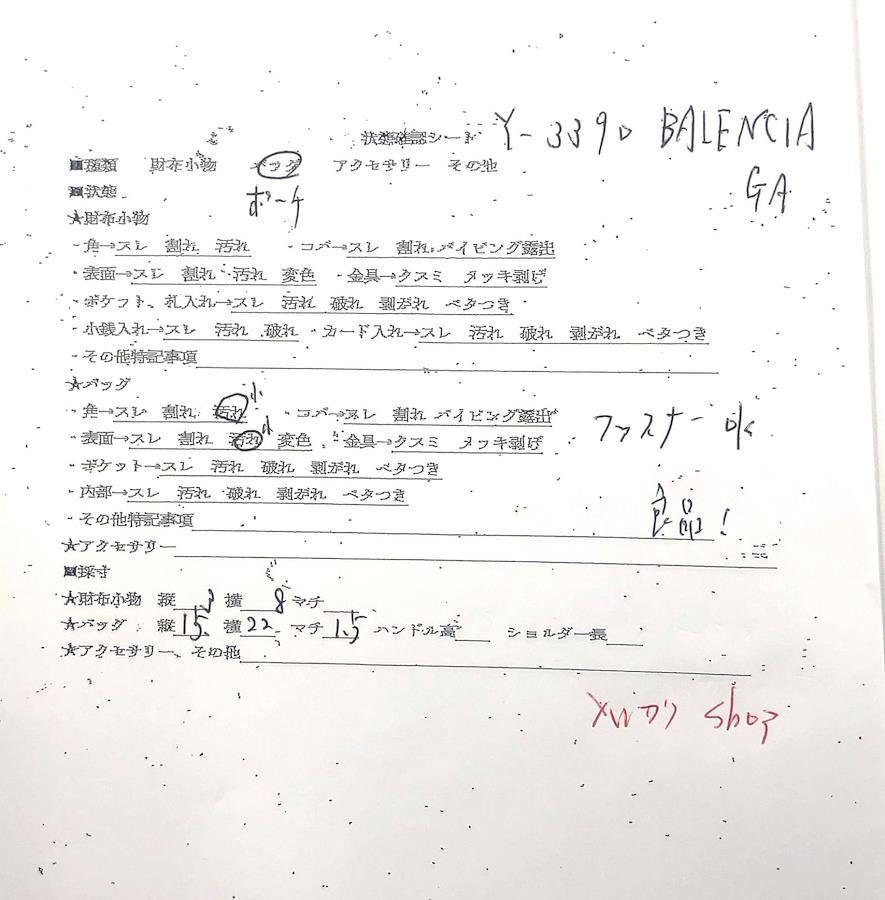 状態確認シート Y-3390 BALENCIA
GA
■種類 財布小物 バッグ アクセサリー その他
■状態 ポーチ
★財布小物
・角→スレ 割れ 汚れ ・コバ→スレ 割れ パイピング露出
・表面→スレ 割れ 汚れ 変色 ・金具→クスミ メッキ剥げ
・ポケット、札入れ→スレ 汚れ 破れ 剥がれ ベタつき
・小銭入れ→スレ 汚れ 破れ ・カード入れ→スレ 汚れ 破れ 剥がれ ベタつき
・その他特記事項
★バッグ
・角→スレ 割れ 汚れ 小 ・コバ→スレ 割れ パイピング露出
・表面→スレ 割れ 汚れ 小 変色 ・金具→クスミ メッキ剥げ
ファスナー ok
・ポケット→スレ 汚れ 破れ 剥がれ ベタつき
・内部→スレ 汚れ 破れ 剥がれ ベタつき
・その他特記事項 良品!
★アクセサリー
■採寸
★財布小物 縦 横 8 マチ
★バッグ 縦 15 横 22 マチ 1.5 ハンドル高 ショルダー長
★アクセサリー、その他
shop